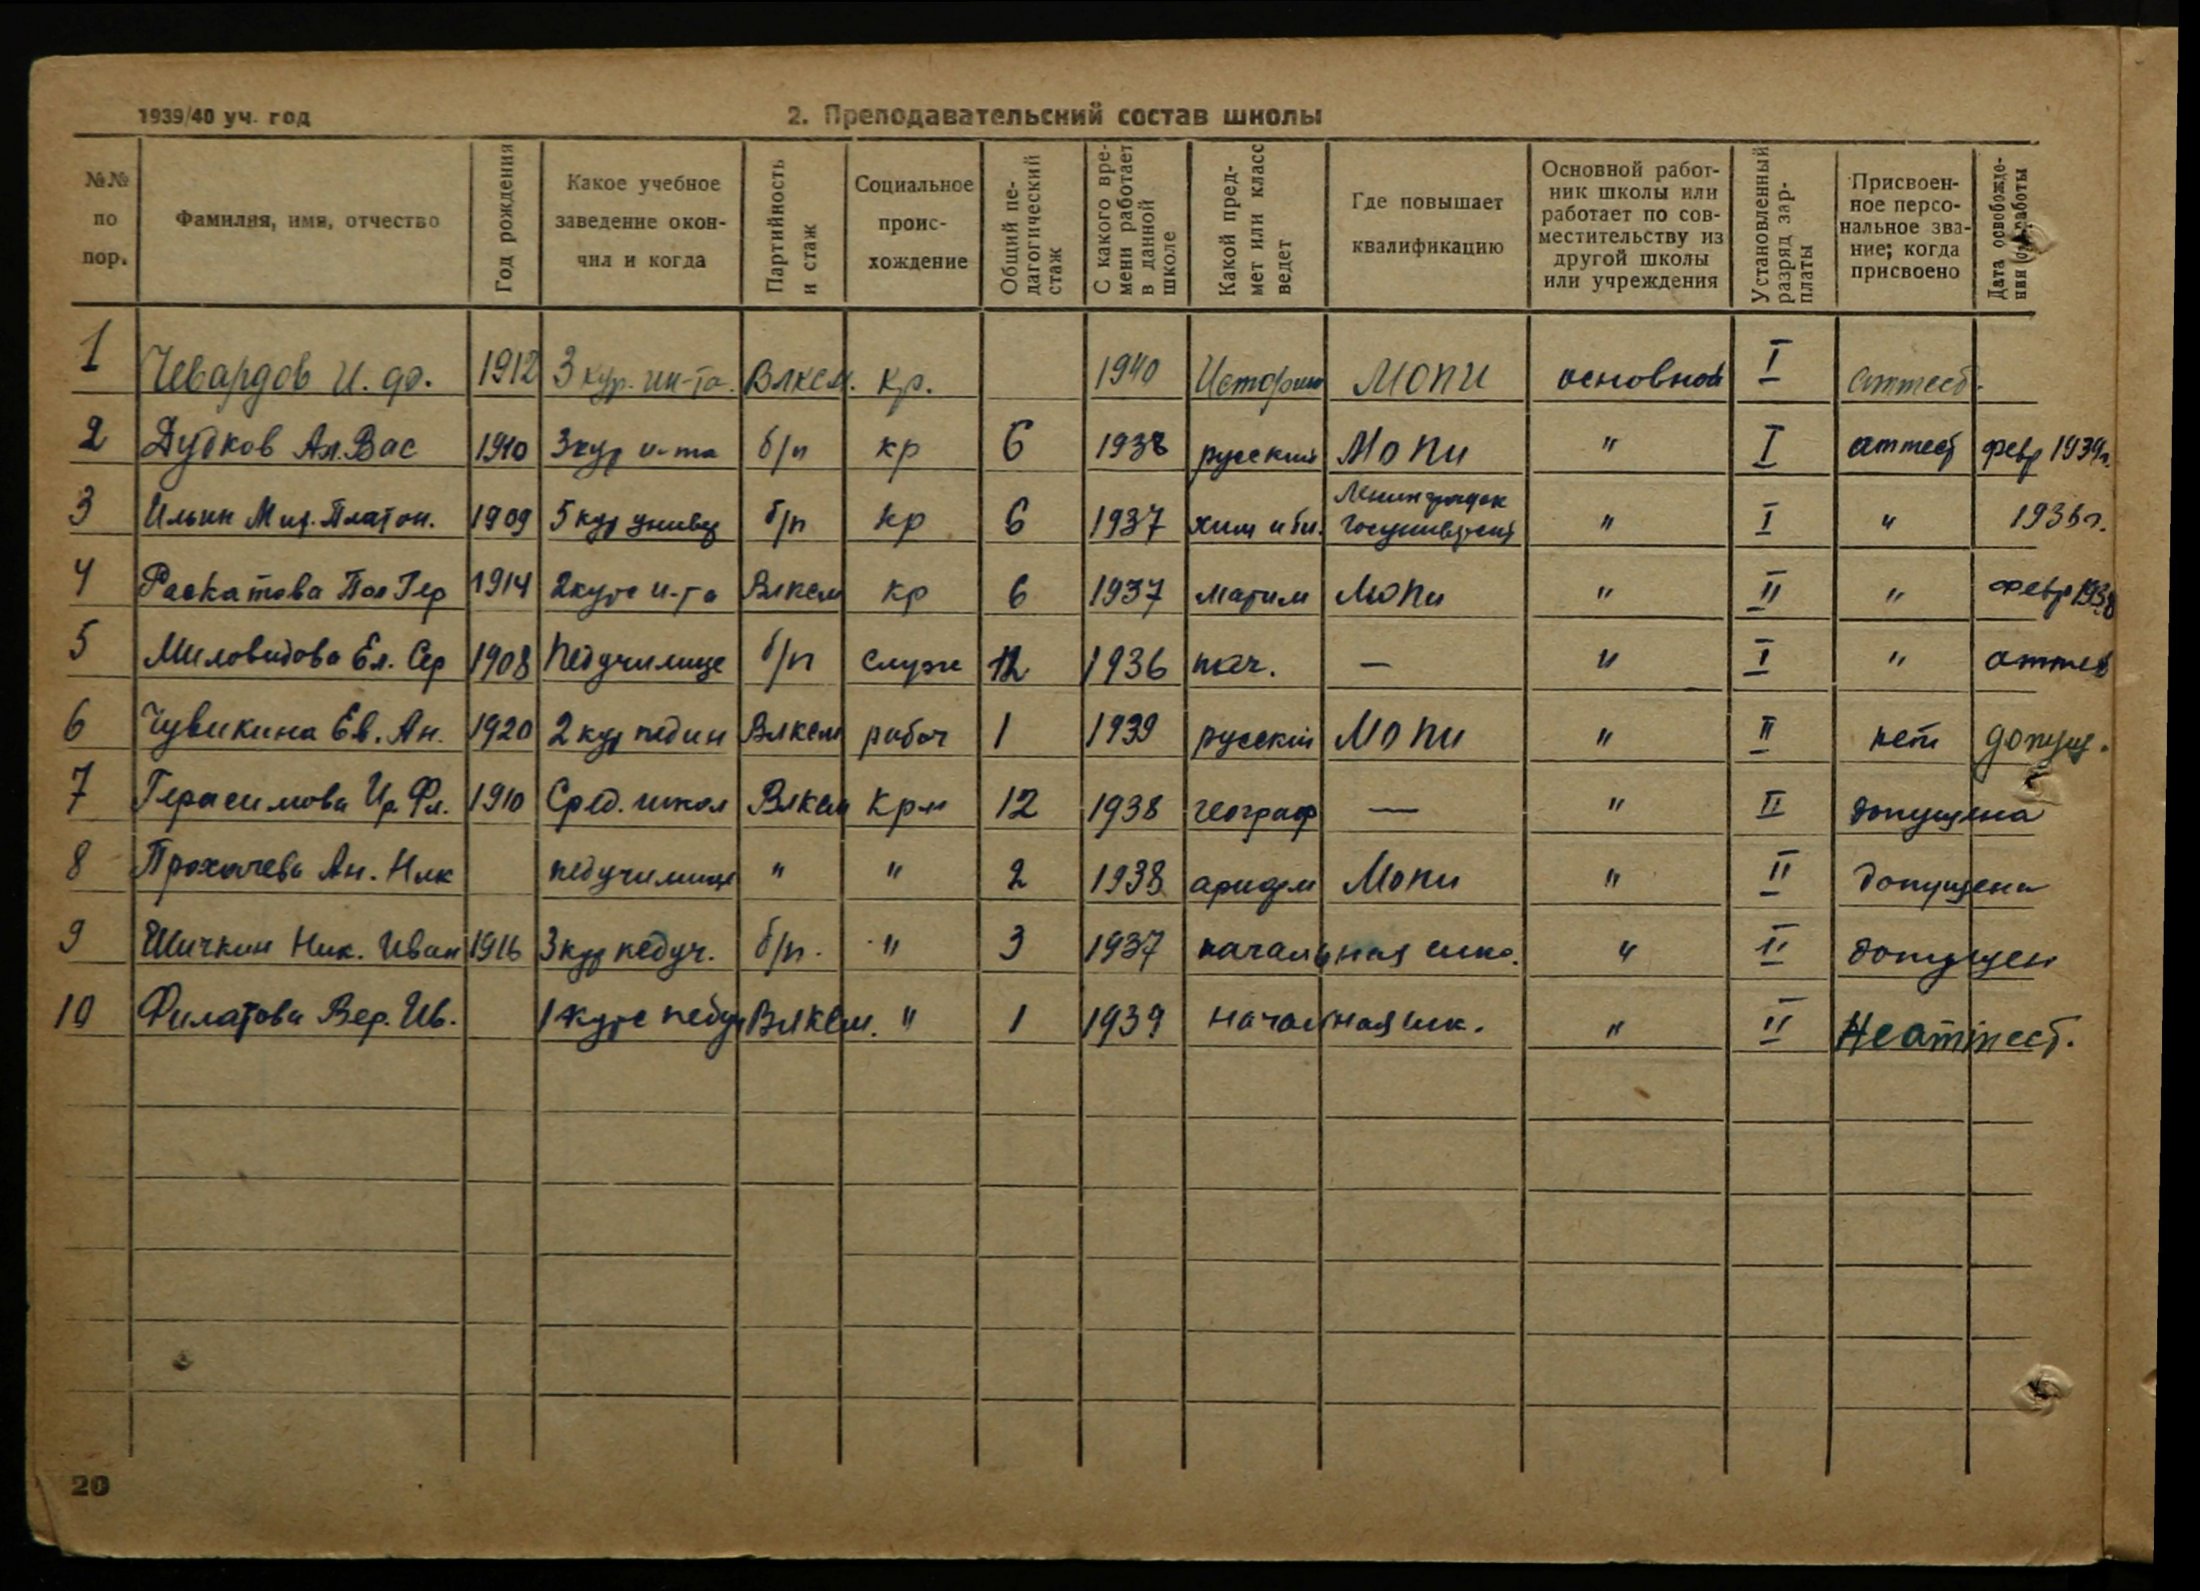 1939/40 уч. год
2. Преподавательский состав школы
№№ по пор.
Фамилия, имя, отчество
Год рождения
Какое учебное заведение окончил и когда
Партийность и стаж
Социальное происхождение
Общий педагогический стаж
С какого времени работает в данной школе
Какой предмет или класс ведет
Где повышает квалификацию
Основной работник школы или работает по совместительству из другой школы или учреждения
Установленный разряд зарплаты
Присвоенное персональное звание; когда присвоено
Дата освобождения от работы
1 Чевардов И. Ф. 1912 3 кур. ин-та. Влксм. кр. 1940 История МОПИ основной I аттест.
2 Дудков Ал. Вас 1910 3 кур и-та б/п кр 6 1938 русский Мопи " I аттест февр 1939г.
3 Ильин Мит. Платон. 1909 5 кур универ б/п кр 6 1937 хим и би. Ленинградск Госуниверсит " I " г.
4 Раскатова Пол Гер 1914 2 курс и-та Влксм кр 6 1937 матем Мопи " II " февр 1938
5 Миловидова Ел. Сер 1908 Педучилище б/п служ 12 1936 нач. — " I " аттес
6 Чувикина Ев. Ан. 1920 2 кур педин Влксм рабоч 1 1939 русский Мопи " II нет допущ.
7 Герасимова Ир. Фл. 1910 Сред. школ Влксм Кр 12 1938 географ — " II допущена
8 Прохачева Ан. Ник педучилище " " 2 1938 арифм Мопи " II допущена
9 Шичкин Ник. Иван 1916 3 кур педуч. б/п. " 3 1937 начальная шко. " II допущен
10 Филатова Вер. Ив. 1 курс педуч Влксм. " 1 1939 начальная шк. " II Неаттест.
20